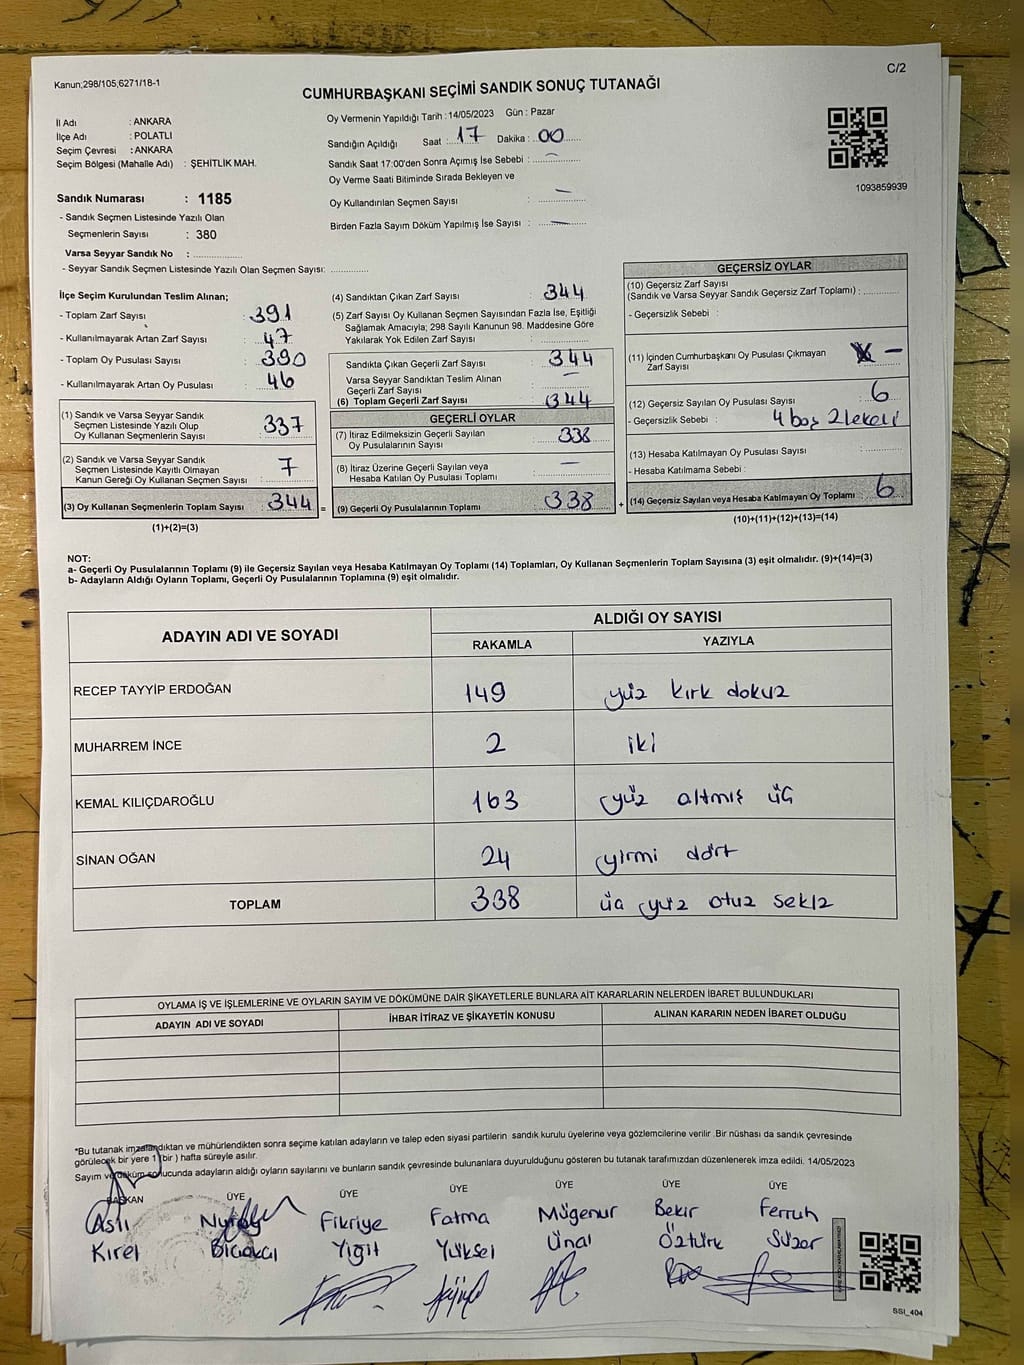 Kanun;298/105;6271/18-1
C/2
CUMHURBAŞKANI SEÇİMİ SANDIK SONUÇ TUTANAĞI
İl Adı : ANKARA
İlçe Adı : POLATLI
Seçim Çevresi : ANKARA
Seçim Bölgesi (Mahalle Adı) : ŞEHİTLİK MAH.
Oy Vermenin Yapıldığı Tarih : 14/05/2023 Gün : Pazar
Sandığın Açıldığı Saat : 17 Dakika : 00
Sandık Saat 17:00'den Sonra Açımış İse Sebebi : —
Oy Verme Saati Bitiminde Sırada Bekleyen ve
Oy Kullandırılan Seçmen Sayısı : —
Birden Fazla Sayım Döküm Yapılmış İse Sayısı : —
1093859939
Sandık Numarası : 1185
- Sandık Seçmen Listesinde Yazılı Olan
Seçmenlerin Sayısı : 380
Varsa Seyyar Sandık No :
- Seyyar Sandık Seçmen Listesinde Yazılı Olan Seçmen Sayısı:
İlçe Seçim Kurulundan Teslim Alınan;
- Toplam Zarf Sayısı : 391
- Kullanılmayarak Artan Zarf Sayısı : 47
- Toplam Oy Pusulası Sayısı : 390
- Kullanılmayarak Artan Oy Pusulası : 46
(1) Sandık ve Varsa Seyyar Sandık
Seçmen Listesinde Yazılı Olup
Oy Kullanan Seçmenlerin Sayısı : 337
(2) Sandık ve Varsa Seyyar Sandık
Seçmen Listesinde Kayıtlı Olmayan
Kanun Gereği Oy Kullanan Seçmen Sayısı : 7
(3) Oy Kullanan Seçmenlerin Toplam Sayısı : 344 =
(1)+(2)=(3)
(4) Sandıktan Çıkan Zarf Sayısı : 344
(5) Zarf Sayısı Oy Kullanan Seçmen Sayısından Fazla İse, Eşitliği
Sağlamak Amacıyla; 298 Sayılı Kanunun 98. Maddesine Göre
Yakılarak Yok Edilen Zarf Sayısı :
Sandıkta Çıkan Geçerli Zarf Sayısı : 344
Varsa Seyyar Sandıktan Teslim Alınan
Geçerli Zarf Sayısı : —
(6) Toplam Geçerli Zarf Sayısı : 344
GEÇERLİ OYLAR
(7) İtiraz Edilmeksizin Geçerli Sayılan
Oy Pusulalarının Sayısı : 338
(8) İtiraz Üzerine Geçerli Sayılan veya
Hesaba Katılan Oy Pusulası Toplamı : —
(9) Geçerli Oy Pusulalarının Toplamı : 338 +
GEÇERSİZ OYLAR
(10) Geçersiz Zarf Sayısı
(Sandık ve Varsa Seyyar Sandık Geçersiz Zarf Toplamı) :
- Geçersizlik Sebebi :
(11) İçinden Cumhurbaşkanı Oy Pusulası Çıkmayan
Zarf Sayısı : —
(12) Geçersiz Sayılan Oy Pusulası Sayısı : 6
- Geçersizlik Sebebi : 4 boş 2 lekeli
(13) Hesaba Katılmayan Oy Pusulası Sayısı :
- Hesaba Katılmama Sebebi :
(14) Geçersiz Sayılan veya Hesaba Katılmayan Oy Toplamı : 6
(10)+(11)+(12)+(13)=(14)
NOT:
a- Geçerli Oy Pusulalarının Toplamı (9) ile Geçersiz Sayılan veya Hesaba Katılmayan Oy Toplamı (14) Toplamları, Oy Kullanan Seçmenlerin Toplam Sayısına (3) eşit olmalıdır. (9)+(14)=(3)
b- Adayların Aldığı Oyların Toplamı, Geçerli Oy Pusulalarının Toplamına (9) eşit olmalıdır.
ADAYIN ADI VE SOYADI
ALDIĞI OY SAYISI
RAKAMLA YAZIYLA
RECEP TAYYİP ERDOĞAN 149 yüz kırk dokuz
MUHARREM İNCE 2 iki
KEMAL KILIÇDAROĞLU 163 yüz altmış üç
SİNAN OĞAN 24 yirmi dört
TOPLAM 338 üç yüz otuz sekiz
OYLAMA İŞ VE İŞLEMLERİNE VE OYLARIN SAYIM VE DÖKÜMÜNE DAİR ŞİKAYETLERLE BUNLARA AİT KARARLARIN NELERDEN İBARET BULUNDUKLARI
ADAYIN ADI VE SOYADI İHBAR İTİRAZ VE ŞİKAYETİN KONUSU ALINAN KARARIN NEDEN İBARET OLDUĞU
*Bu tutanak imzalandıktan ve mühürlendikten sonra seçime katılan adayların ve talep eden siyasi partilerin sandık kurulu üyelerine veya gözlemcilerine verilir .Bir nüshası da sandık çevresinde
görülecek bir yere 1 (bir ) hafta süreyle asılır.
Sayım ve döküm sonucunda adayların aldığı oyların sayılarını ve bunların sandık çevresinde bulunanlara duyurulduğunu gösteren bu tutanak tarafımızdan düzenlenerek imza edildi. 14/05/2023
BAŞKAN ÜYE ÜYE ÜYE ÜYE ÜYE ÜYE
Aslı Nuray Fikriye Fatma Mügenur Bekir Ferruh
Kırel Bıçakcı Yiğit Yüksel Ünal Öztürk Süzer
SSI_404